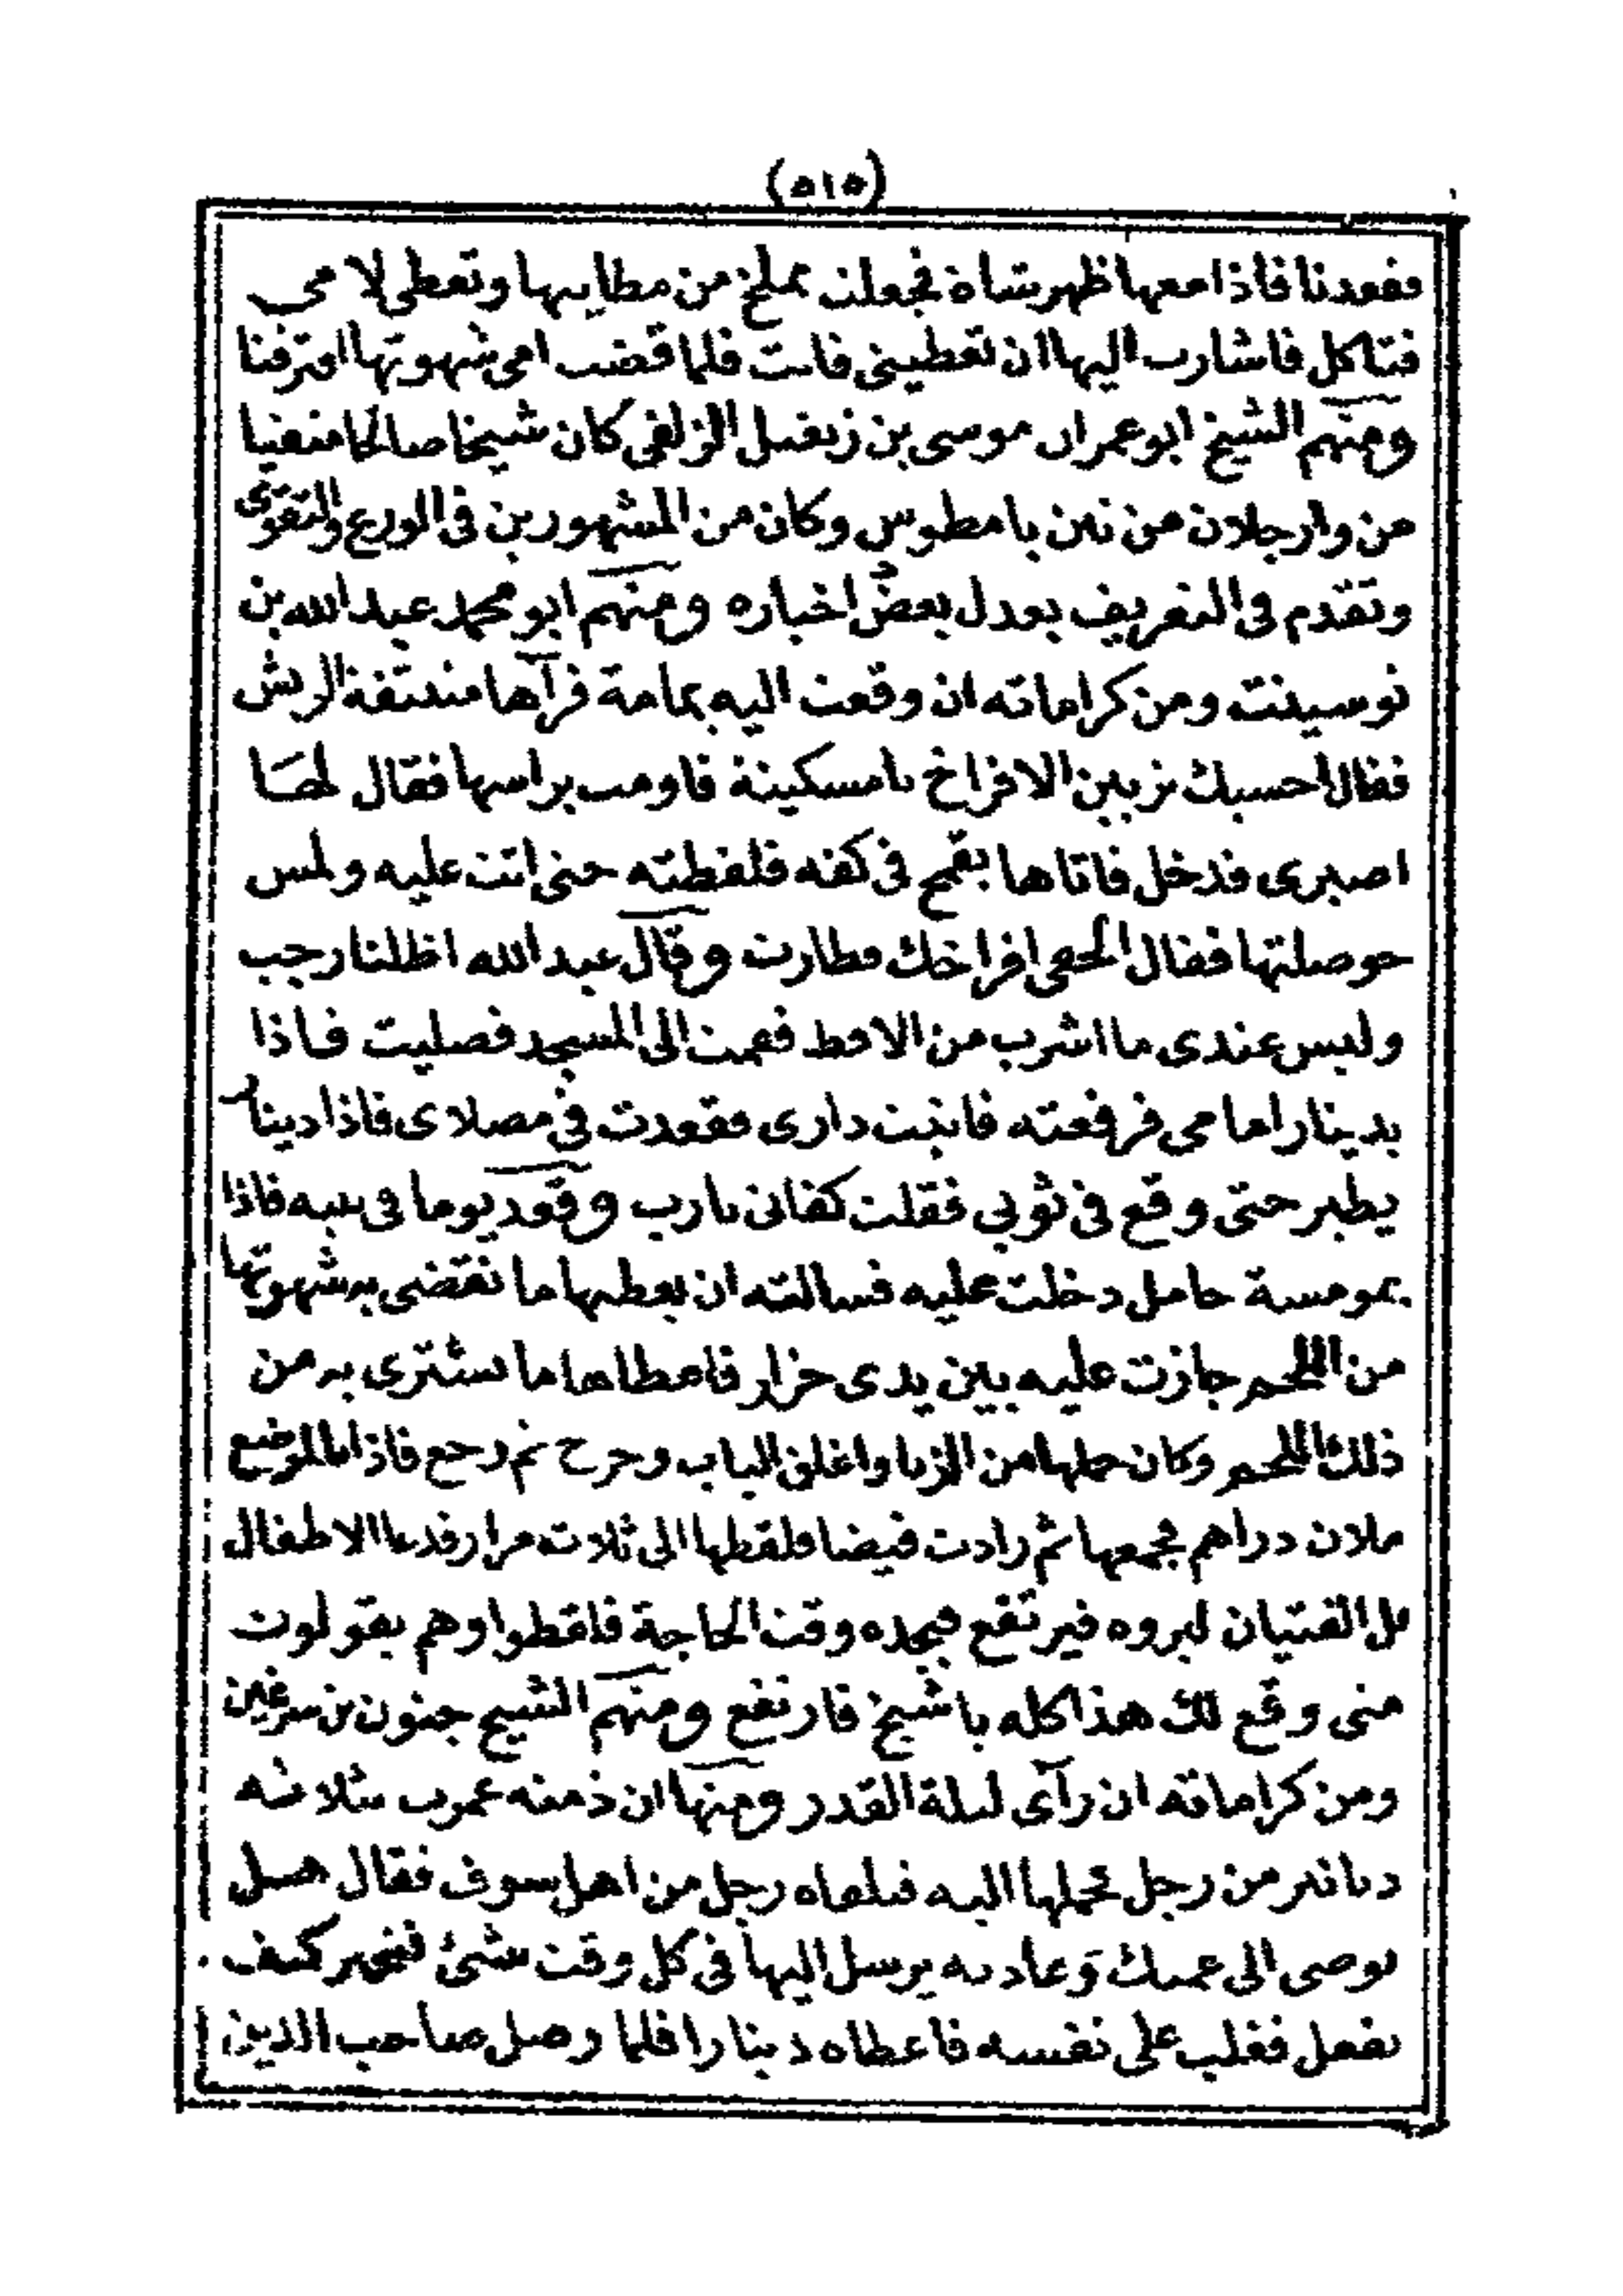 (٥١٥)
فقعدنا فاذا معها ظهر شاة فجعلت تملخ من مطايبها وتعطي لامي
فتاكل فاشارت اليها ان تعطيني فابت فلما قضت امي شهوتها افترقنا
ومنهم الشيخ ابو عمران موسى بن زنغيل الزلفي كان شيخا صالحا منفيا
من وارجلان من تين بامطوس وكان من المشهورين في الورع والتقوى
وتقدم في التعريف بعدل بعض اخباره ومنهم ابو محمد عبد الله بن
نوسينت ومن كراماته ان وقعت اليه يمامة فرآها منتتفة الريش
فقال احسبك تزبين الافراخ يا مسكينة فاومت براسها فقال لها
اصبري فدخل فاتاها بقمح في كفه فلقطته حتى اتت عليه ولمس
حوصلتها فقال الحقي افراخك فطارت وقال عبد الله اظلنا رجب
وليس عندي ما اشرب من الاقط فقمت الى المسجد فصليت فاذا
بدينار امامي فرفعته فاتيت داري فقعدت في مصلاي فاذا دينار
يطير حتى وقع في ثوبي فقلت كفاني يارب وقعد يوما في بيته فاذا
بمومسة حامل دخلت عليه فسالته ان يعطيها ما تقضي به شهوتها
من اللحم جازت عليه بين يدي جزار فاعطاها ما تشتري به من
ذلك اللحم وكان حملها من الزنا واغلق الباب وخرج ثم رجع فاذا بالموضع
ملان دراهم فجمعها ثم زادت فيضا فلقطها الى ثلاث مرار فدعا الاطفال
بل الفتيان ليروه فيرتفع فيجده وقت الحاجة فلقطوا وهم يقولون
متى وقع لك هذا كله يا شيخ فارتفع ومنهم الشيخ جنون بن سرغين
ومن كراماته ان رآى ليلة القدر ومنها ان ذمته عمرت بثلاثه
دنانير من رجل فحملها اليه فلقاه رجل من اهل سوف فقال هل
توصي الى عمتك وعادته يرسل اليها في كل وقت بشئ فتحير كيف
يفعل فغلب على نفسه فاعطاه دينارا فلما وصل صاحب الدين